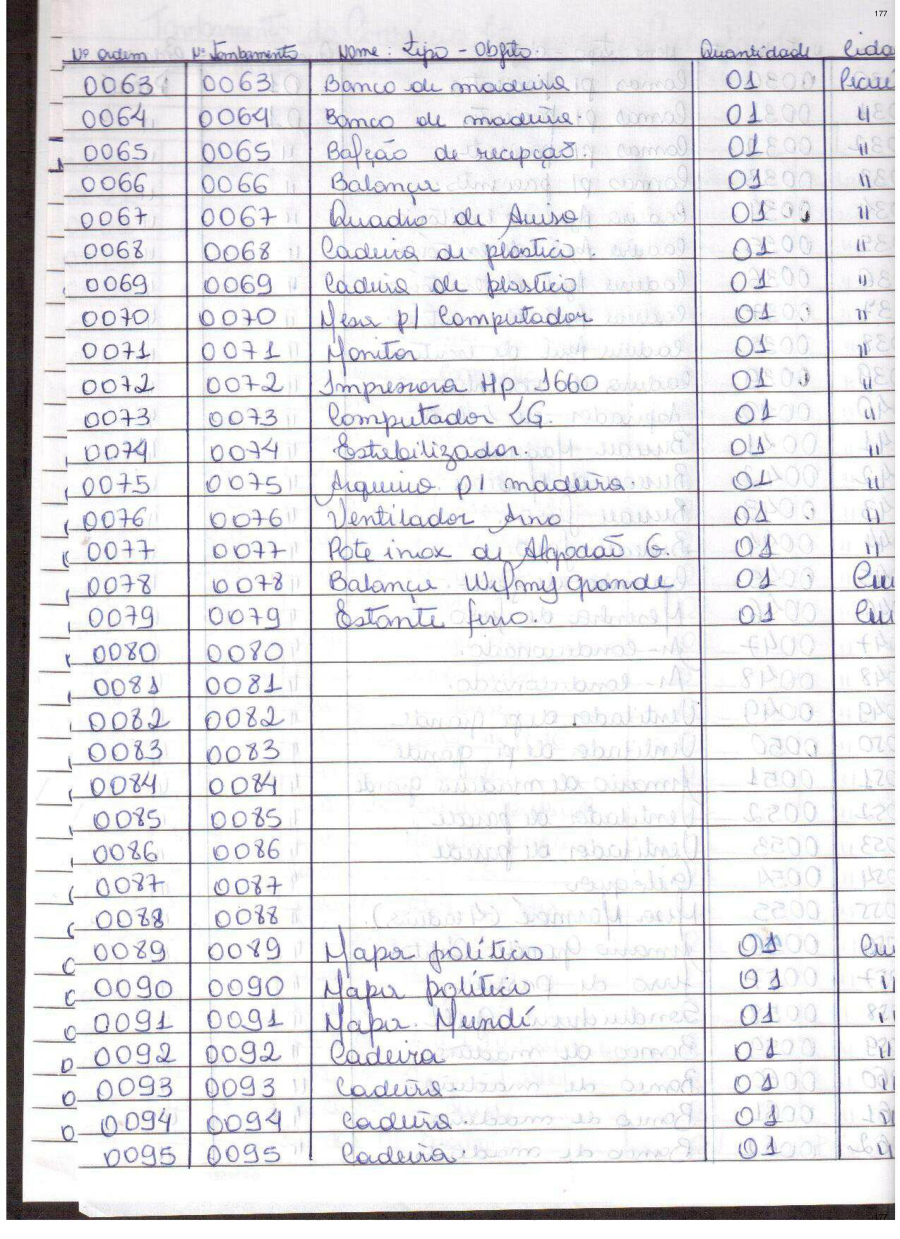 177
Nº ordem Nº Tombamento Nome: Tipo - Objeto Quantidade Cida
0063 0063 Banco de madeira 01
0064 0064 Banco de madeira. 01 "
0065 0065 Balcão de recepção. 01 "
0066 0066 Balança 01 "
0067 0067 Quadro de Aviso 01 "
0068 0068 Cadeira de plastico. 01 "
0069 0069 Cadeira de plastico 01 "
0070 0070 Mesa p/ Computador 01 "
0071 0071 Monitor 01 "
0072 0072 Impressora Hp 1660 01 "
0073 0073 Computador LG. 01 "
0074 0074 Estabilizador. 01 "
0075 0075 Arquivo p/ madeira. 01 "
0076 0076 Ventilador Arno 01 "
0077 0077 Pote inox de Algodão G. 01 "
0078 0078 Balança Welmy grande 01
0079 0079 Estante ferro. 01
0080 0080
0081 0081
0082 0082
0083 0083
0084 0084
0085 0085
0086 0086
0087 0087
0088 0088
0089 0089 Mapa político 01
0090 0090 Mapa político 01 "
0091 0091 Mapa Mundí 01 "
0092 0092 Cadeira 01 "
0093 0093 Cadeira 01 "
0094 0094 Cadeira. 01 "
0095 0095 Cadeira. 01 "
177